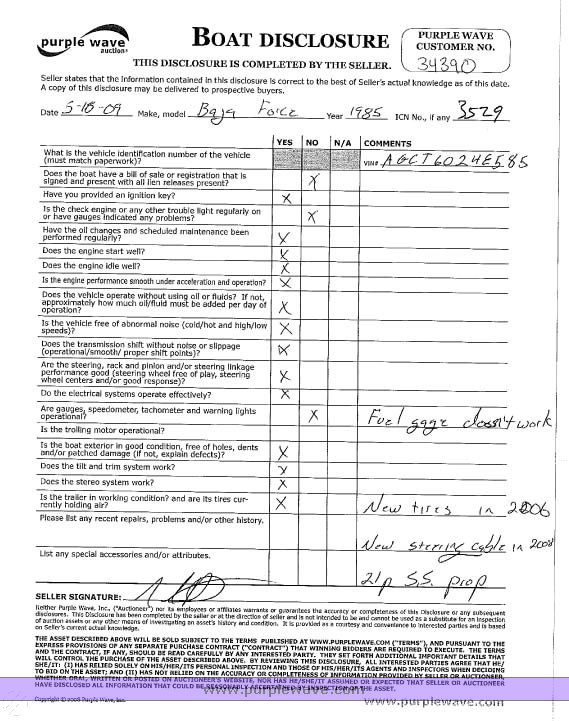 purple wave
auction
BOAT DISCLOSURE
PURPLE WAVE
CUSTOMER NO.
34390
THIS DISCLOSURE IS COMPLETED BY THE SELLER.
Seller states that the information contained in this disclosure is correct to the best of Seller's actual knowledge as of this date.
A copy of this disclosure may be delivered to prospective buyers.
Date 5-18-09 Make, model Baja Force Year 1985 ICN No., if any 3529
YES NO N/A COMMENTS
What is the vehicle identification number of the vehicle
(must match paperwork)?
VIN# AGCT6024E585
Does the boat have a bill of sale or registration that is
signed and present with all lien releases present? X
Have you provided an ignition key? X
Is the check engine or any other trouble light regularly on
or have gauges indicated any problems? X
Have the oil changes and scheduled maintenance been
performed regularly? X
Does the engine start well? X
Does the engine idle well? X
Is the engine performance smooth under acceleration and operation? X
Does the vehicle operate without using oil or fluids? If not,
approximately how much oil/fluid must be added per day of
operation? X
Is the vehicle free of abnormal noise (cold/hot and high/low
speeds)? X
Does the transmission shift without noise or slippage
(operational/smooth/ proper shift points)? X
Are the steering, rack and pinion and/or steering linkage
performance good (steering wheel free of play, steering
wheel centers and/or good response)? X
Do the electrical systems operate effectively? X
Are gauges, speedometer, tachometer and warning lights
operational? X Fuel gage doesn't work
Is the trolling motor operational?
Is the boat exterior in good condition, free of holes, dents
and/or patched damage (if not, explain defects)? X
Does the tilt and trim system work? X
Does the stereo system work? X
Is the trailer in working condition? and are its tires cur-
rently holding air? X New tires in 2006
Please list any recent repairs, problems and/or other history.
New stering cable in 2008
List any special accessories and/or attributes.
21p S.S. prop
SELLER SIGNATURE:
Neither Purple Wave, Inc. ("Auctioneer") nor its employees or affiliates warrants or guarantees the accuracy or completeness of this Disclosure or any subsequent
disclosures. This Disclosure has been completed by the seller or at the direction of seller and is not intended to and cannot be used as a substitute for an inspection
of auction assets or any other means of investigating an asset's history and condition. It is provided as a courtesy and convenience to interested parties and is based
on Seller's current actual knowledge.
THE ASSET DESCRIBED ABOVE WILL BE SOLD SUBJECT TO THE TERMS PUBLISHED AT WWW.PURPLEWAVE.COM ("TERMS"), AND PURSUANT TO THE
EXPRESS PROVISIONS OF ANY SEPARATE PURCHASE CONTRACT ("CONTRACT") THAT WINNING BIDDERS ARE REQUIRED TO EXECUTE. THE TERMS
AND CONTRACT, IF ANY, SHOULD BE READ CAREFULLY BY ANY INTERESTED PARTY. THEY SET FORTH ADDITIONAL IMPORTANT DETAILS THAT
WILL CONTROL THE PURCHASE OF THE ASSET DESCRIBED ABOVE. BY REVIEWING THIS DISCLOSURE, ALL INTERESTED PARTIES AGREE THAT HE/
SHE/IT: (I) HAS RELIED SOLELY ON HIS/HER/ITS PERSONAL INSPECTION AND THOSE OF HIS/HER/ITS AGENTS AND INSPECTORS WHEN DECIDING
TO BID ON THE ASSET; AND (II) HAS NOT RELIED ON THE ACCURACY OR COMPLETENESS OF INFORMATION PROVIDED BY SELLER OR AUCTIONEER,
WHETHER ORAL, WRITTEN OR POSTED ON AUCTIONEER'S WEBSITE. NOR HAS HE/SHE/IT ASSUMED OR EXPECTED THAT SELLER OR AUCTIONEER
HAVE DISCLOSED ALL INFORMATION THAT COULD BE REASONABLY ASCERTAINED BY INSPECTION OF THE ASSET.
www.purplewave.com
Copyright © 2008 Purple Wave, Inc.
www.purplewave.com